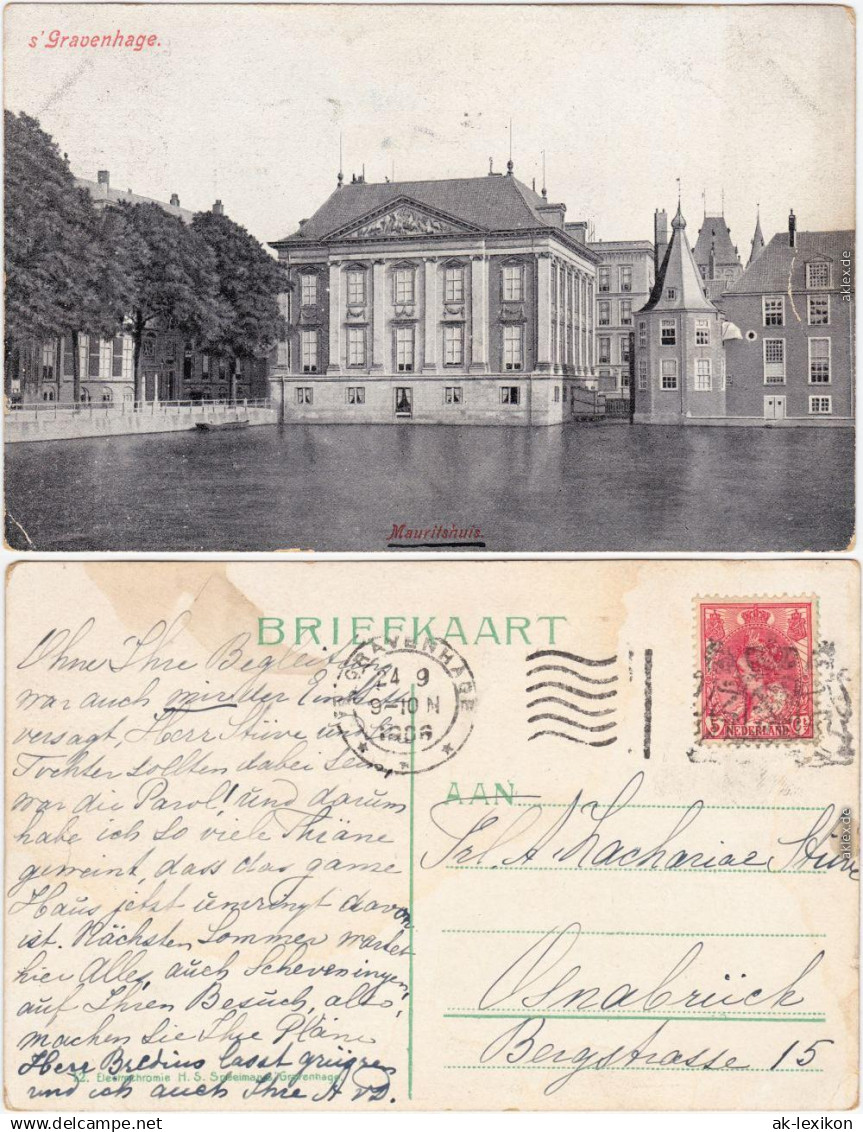 s'Gravenhage.
Mauritshuis.
aklex.de
BRIEFKAART
Ohne Ihre Begleitung
war auch mir der Eintritt
versagt, Herr Stüve und
Tochter sollten dabei sein
war die Parol! und darum
habe ich so viele Thräne
geweint, dass das ganze
Haus jetzt umringt davon
ist. Nächsten Sommer wartet
hier Alles, auch Scheveningen,
auf Ihren Besuch, also,
machen Sie Ihre Pläne
Herr Bredius lasst grüssen
und ich auch Ihre A v D.
12. Electrochromie H. S. Speelman's Gravenhage.
'S GRAVENHAGE
24 9
9-10 N
1906
5 Ct
NEDERLAND
AAN
Frl. A. Zachariae Stüve
Osnabrück
Bergstrasse 15
aklex.de
ak-lexikon